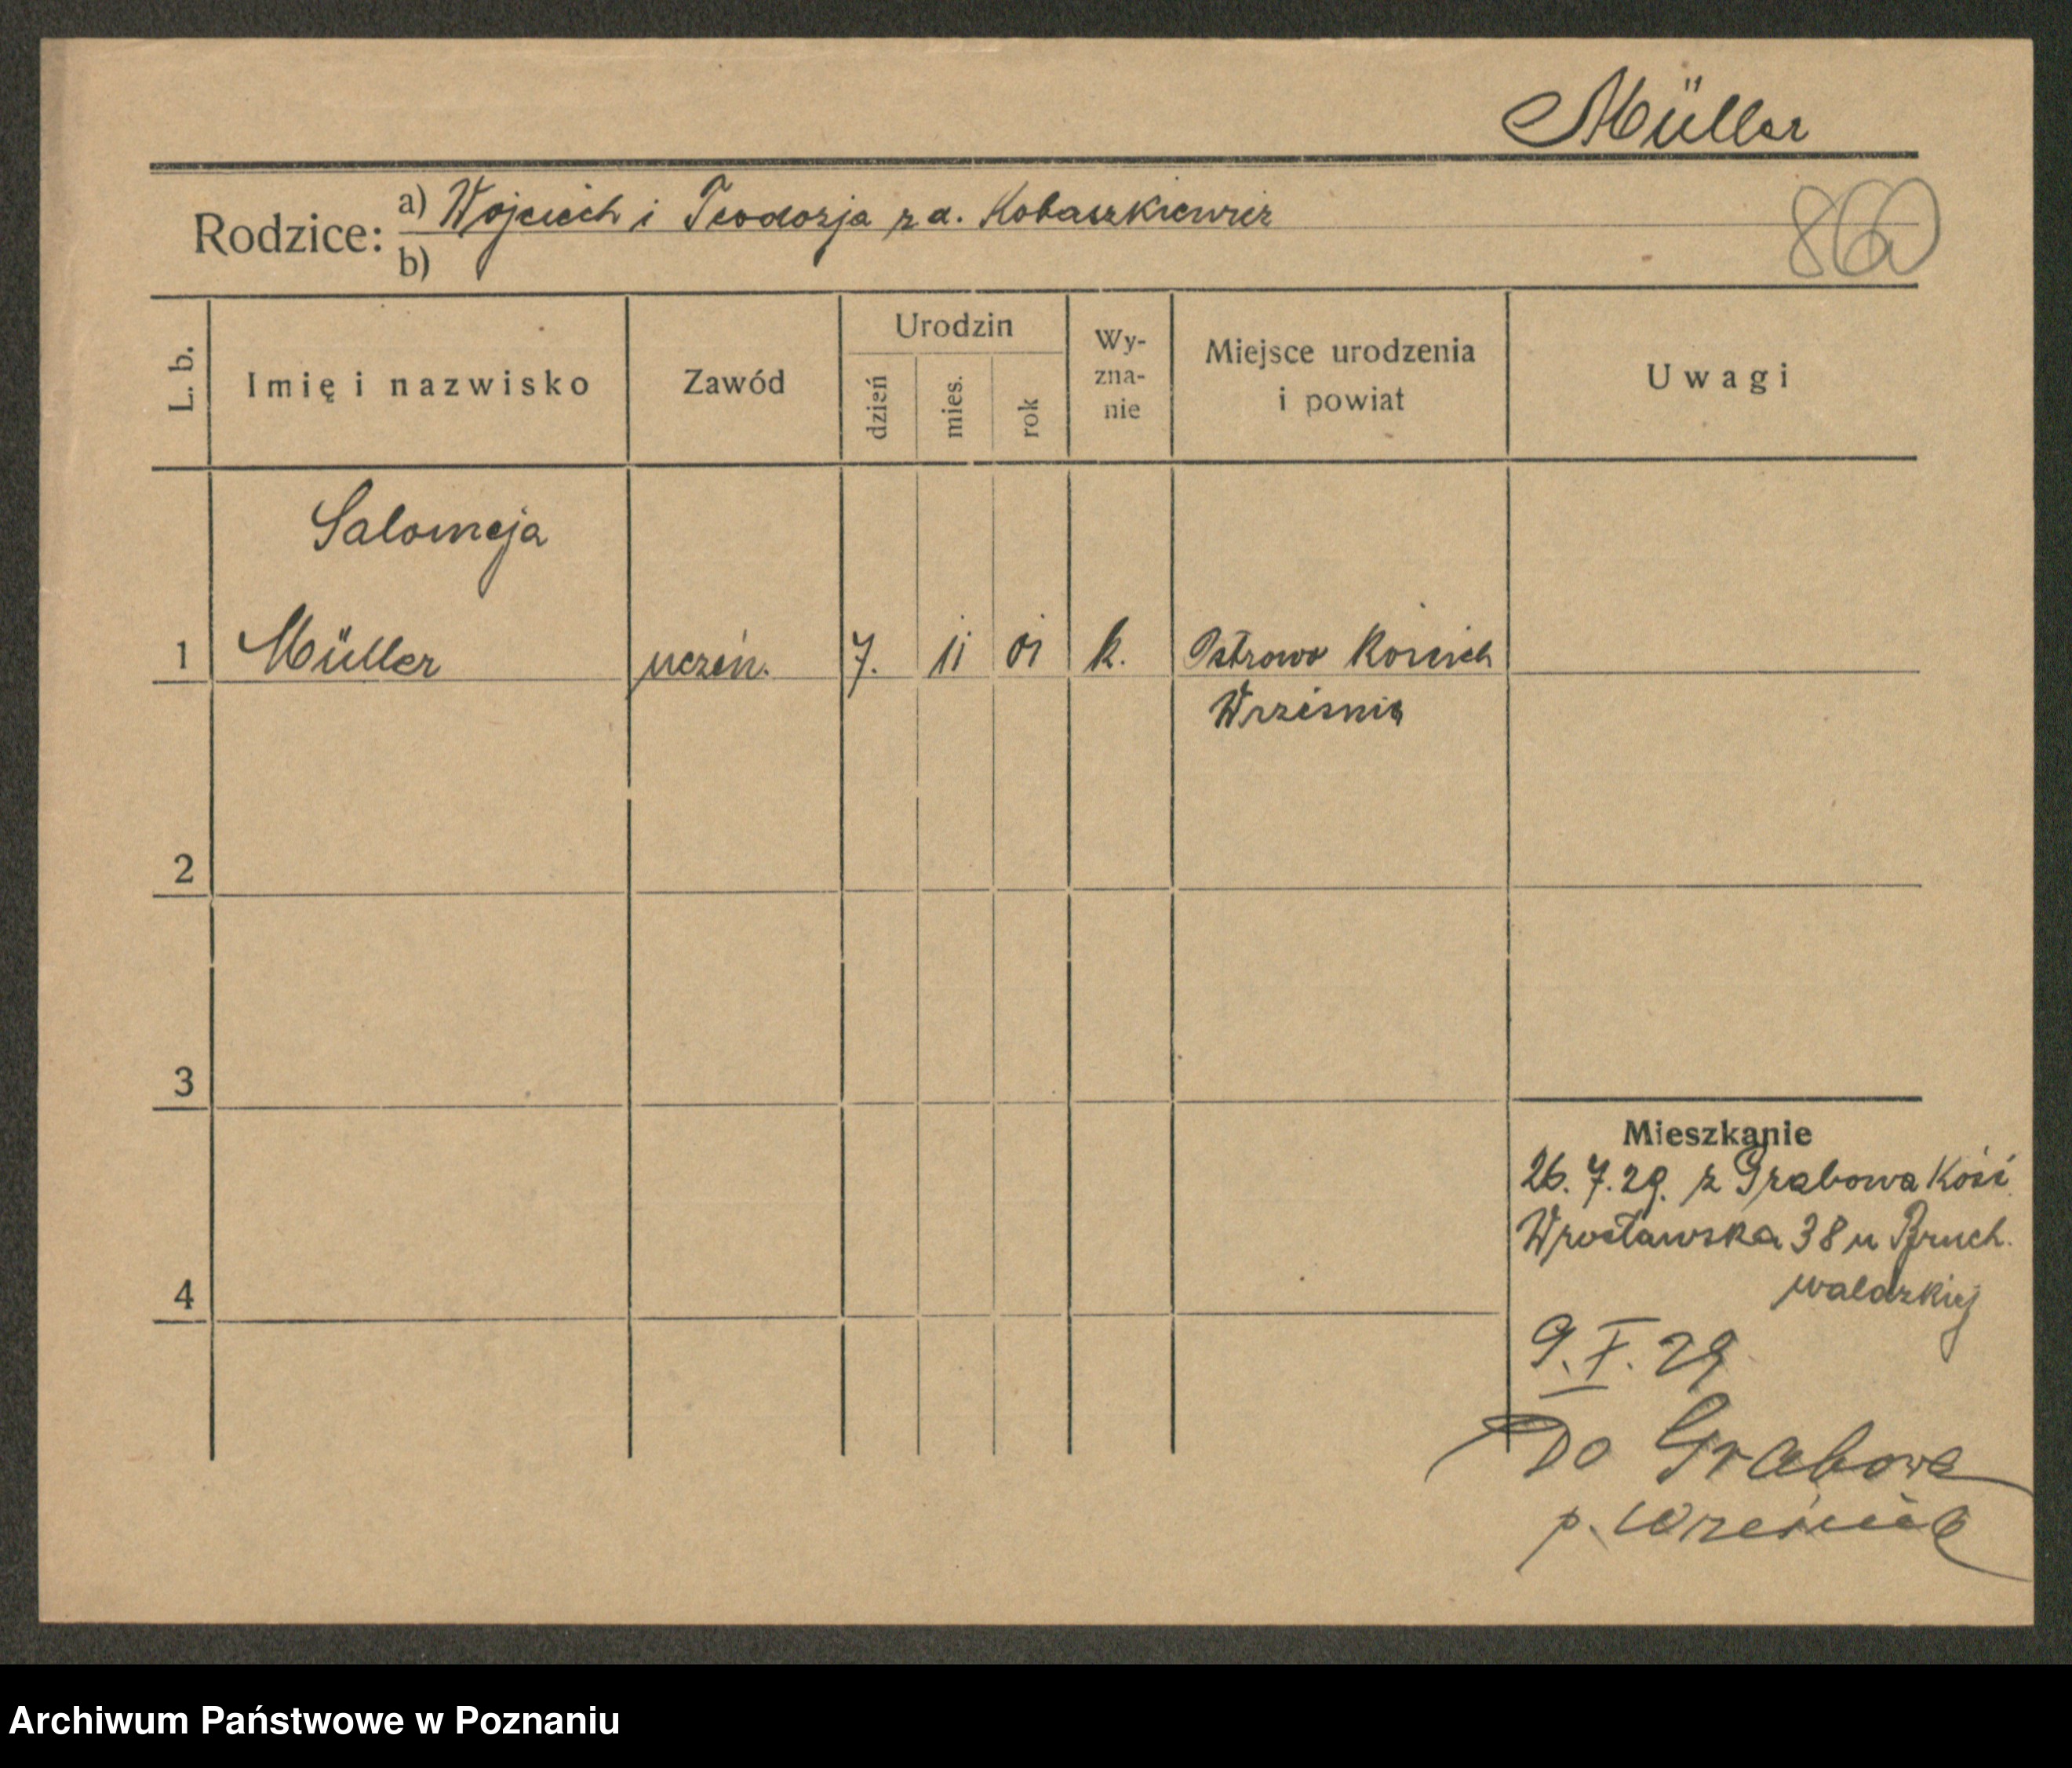 Müller
Rodzice: a) Wojciech i Teodozja z d. Kobaszkiewicz
b)
860
L. b.
Imię i nazwisko
Zawód
Urodzin
dzień
mies.
rok
Wy-
zna-
nie
Miejsce urodzenia
i powiat
Uwagi
Salomeja
1 Müller uczeń. 7. 11 01 k. Ostrowo Kościel
Września
2
3
4
Mieszkanie
26. 7. 29. z Grabowa Kośc
Wrocławska 38 u Bruch.
waldzkiej
9. X. 29
Do Grabowa
p. Września
Archiwum Państwowe w Poznaniu